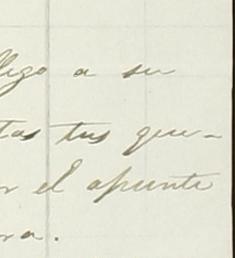 llego a su
tas tus que-
r el apunte
ra.